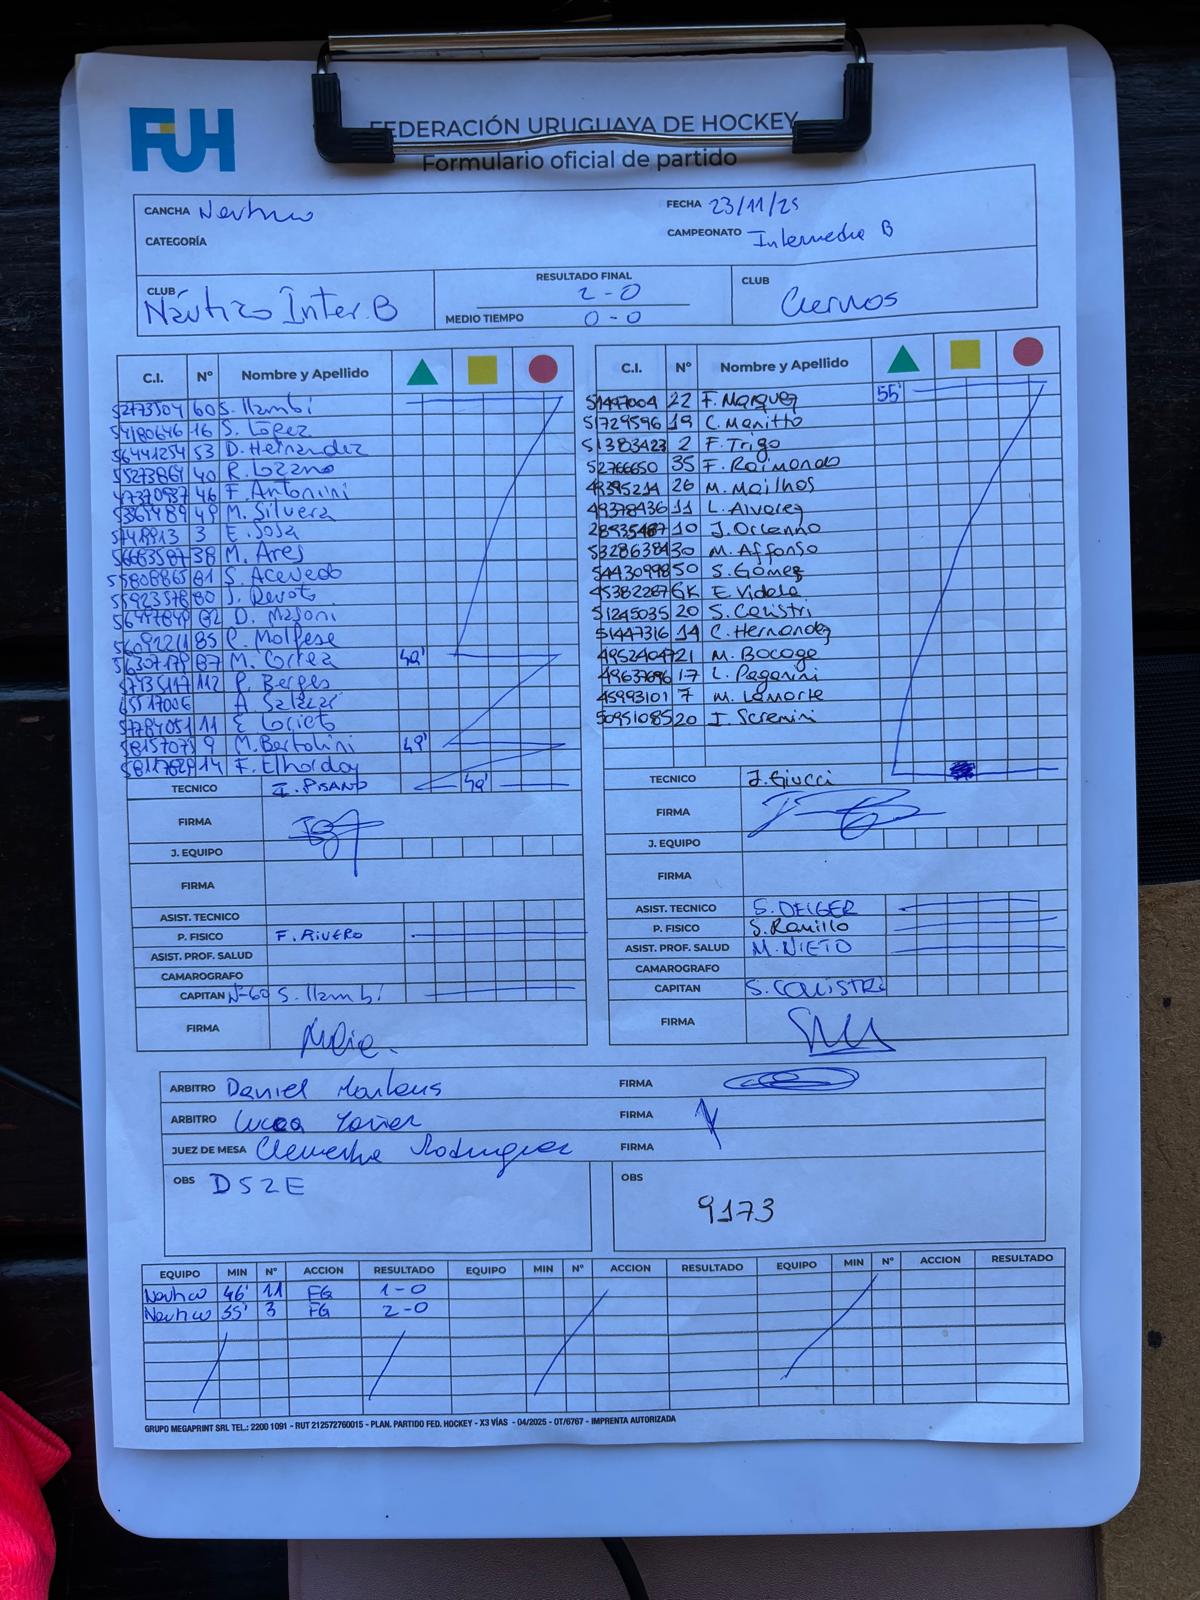 FUH
FEDERACIÓN URUGUAYA DE HOCKEY
Formulario oficial de partido
CANCHA Nautico FECHA 23/11/25
CATEGORÍA CAMPEONATO Intermedia B
CLUB Náutico Inter. B RESULTADO FINAL 2-0 CLUB Ciervos
MEDIO TIEMPO 0-0
C.I. Nº Nombre y Apellido
52173504 60 S. Ilambi
54180646 16 S. López
56441254 53 D. Hernandez
55273861 40 R. Lozano
47370937 46 F. Antonini
49 M. Silvera
3 E. Sosa
56683587 38 M. Ares
81 S. Acevedo
55923578 80 J. Devoto
D. Masoni
85 Molfese
56307179 87 M. Correa 49'
57435117 112 Berges
A. Salazar
57784051 11 E.
9 M. Bertolini 49'
14 F. Elhordoy
TECNICO I. PISANO 49'
FIRMA
J. EQUIPO
FIRMA
ASIST. TECNICO
P. FISICO F. RIVERO
ASIST. PROF. SALUD
CAMAROGRAFO
CAPITAN Nº60 S. Ilambi
FIRMA
C.I. Nº Nombre y Apellido
51497004 22 F. Marquez 55'
51729596 19 C. Manitto
51383423 2 F. Trigo
52766650 35 F. Raimondo
48395214 26 M. Mailhos
49378436 11 L. Alvarez
28935487 10 J. Orcanno
53286384 30 M. Affonso
54430998 50 S. Gómez
45382267 GK E. Videla
51245035 20 S. Calistri
51447316 14 C. Hernandez
49524047 21 M. Bocage
49637696 17 L. Paganini
45993101 7 M. Lamarte
50951085 20 I. Scremini
TECNICO J. Giucci
FIRMA
J. EQUIPO
FIRMA
ASIST. TECNICO S. DELGER
P. FISICO S. Ramillo
ASIST. PROF. SALUD M. NIETO
CAMAROGRAFO
CAPITAN S. CALISTRI
FIRMA
ARBITRO Daniel FIRMA
ARBITRO Lucca FIRMA
JUEZ DE MESA Clementina Rodriguez FIRMA
OBS D52E OBS
9173
EQUIPO MIN Nº ACCION RESULTADO EQUIPO MIN Nº ACCION RESULTADO EQUIPO MIN Nº ACCION RESULTADO
Nautico 46' 11 FG 1-0
Nautico 55' 3 FG 2-0
GRUPO MEGAPRINT SRL TEL.: 2200 1091 - RUT 212572760015 - PLAN. PARTIDO FED. HOCKEY - X3 VÍAS - 04/2025 - OT/6767 - IMPRENTA AUTORIZADA